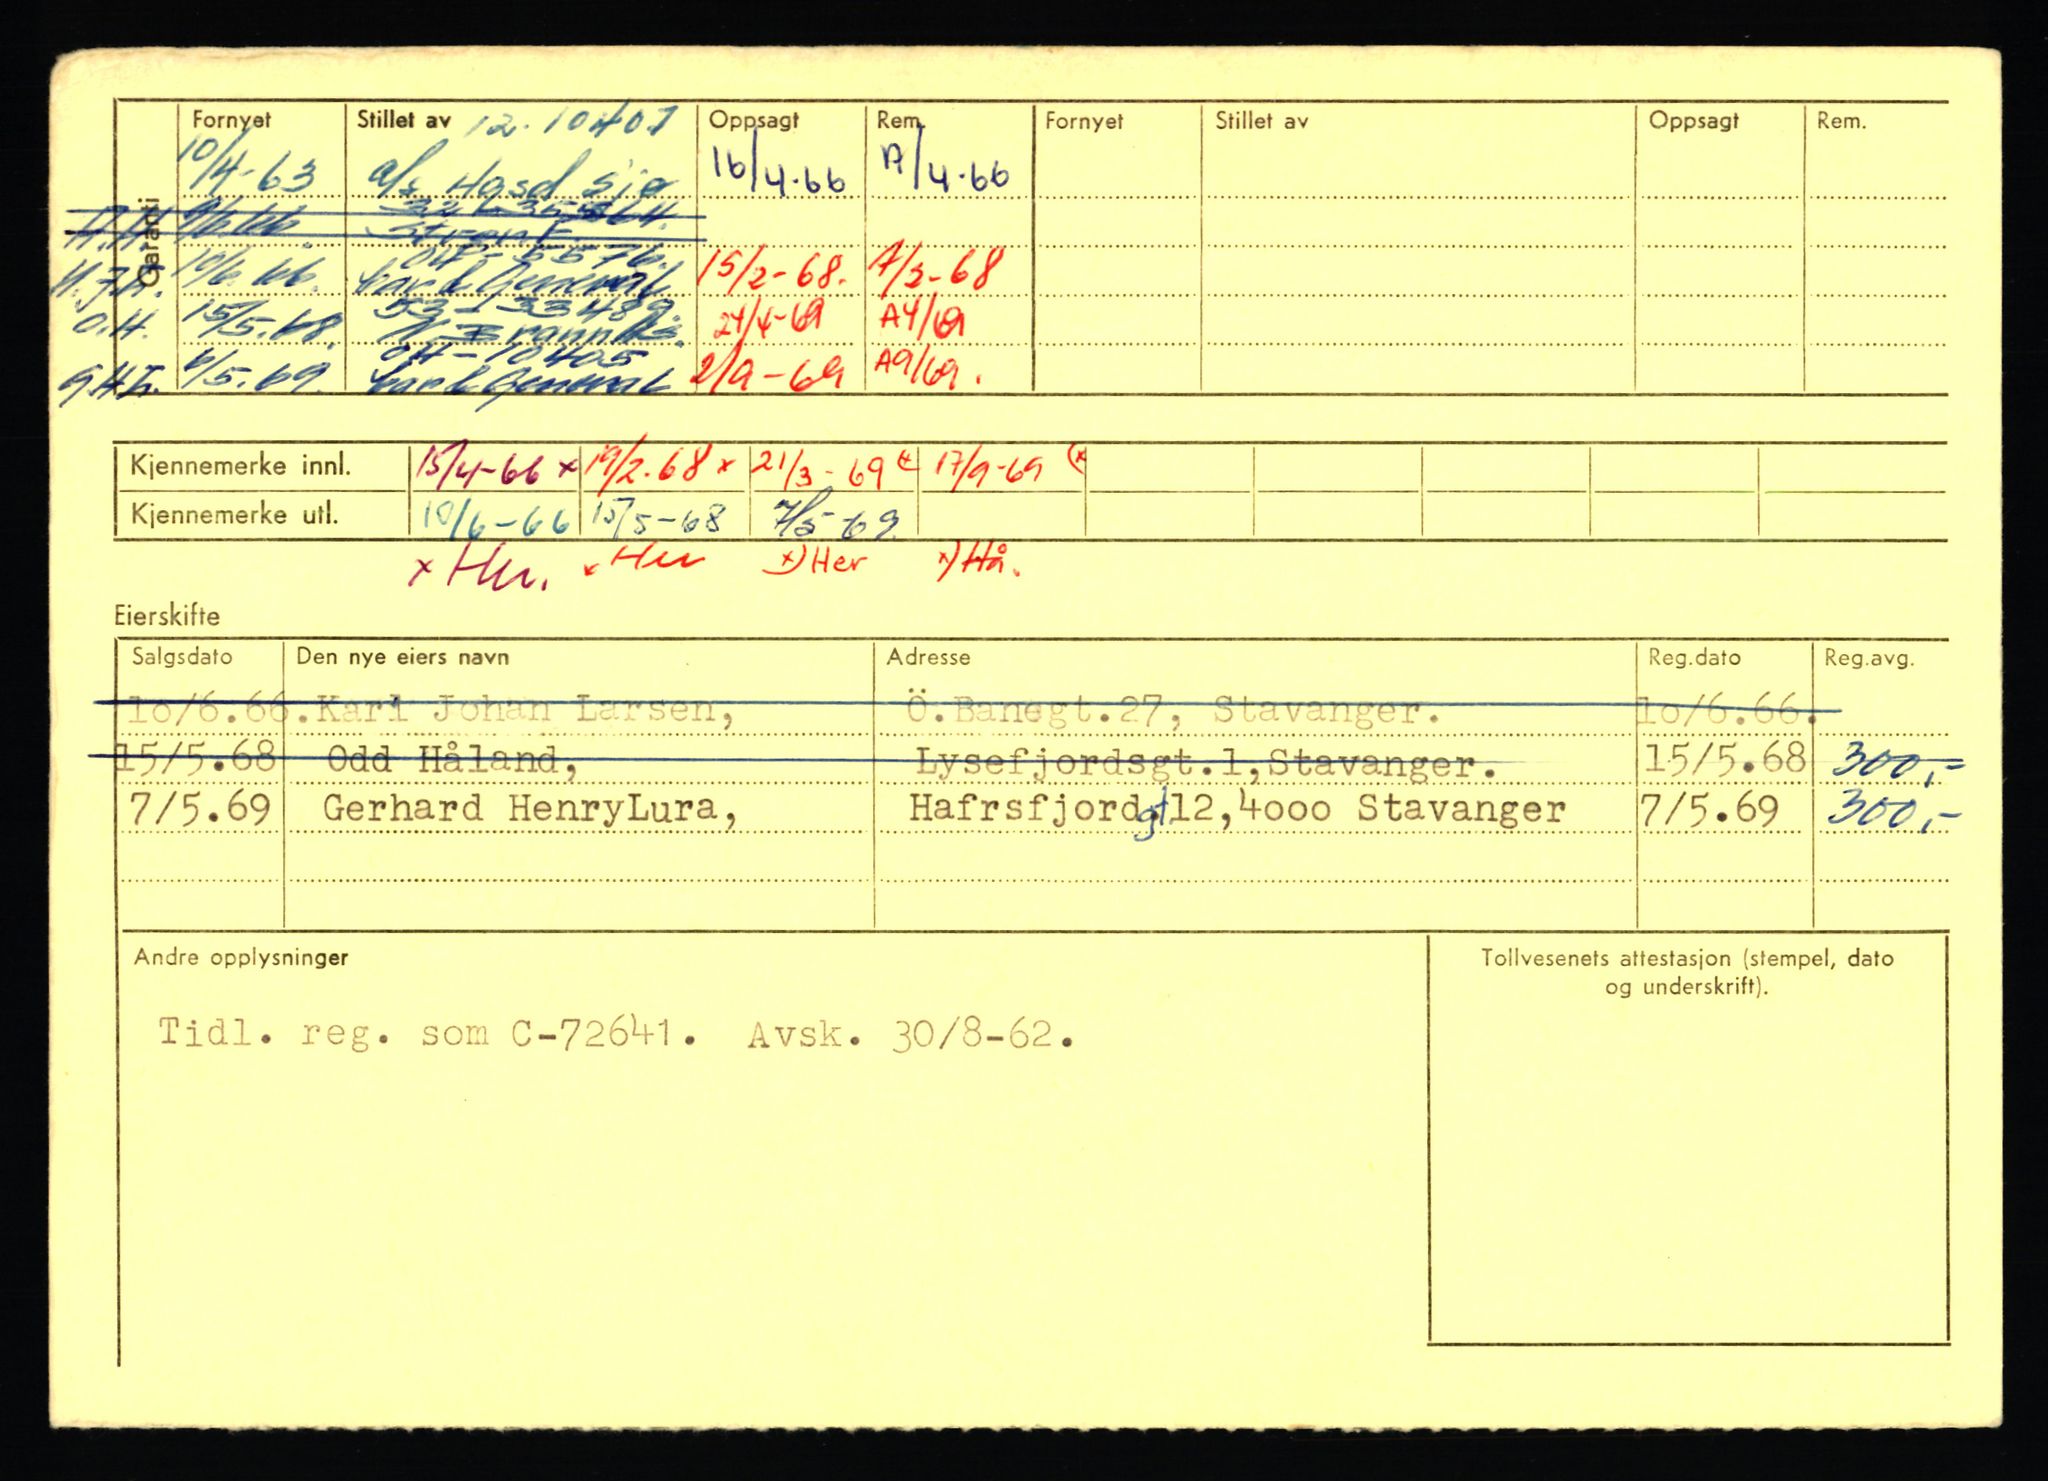 Garanti
Fornyet Stillet av 12.10407 Oppsagt Rem. Fornyet Stillet av Oppsagt Rem.
10/4-63 a/s 16/4-66 A/4-66
10/6.66. 15/2-68. A/3-68
O.H. 15/5.68. 53-133489. 24/4-69 A4/69
04-10405
6/5.69. 2/9-69 A9/69.
Kjennemerke innl. 15/4-66 x 19/2.68 x 21/3-69 17/9-69
Kjennemerke utl. 10/6-66 15/5-68 7/5-69.
x) Her x) Hå.
Eierskifte
Salgsdato Den nye eiers navn Adresse Reg.dato Reg.avg.
10/6.66. Karl Johan Larsen, Ö.Banegt.27, Stavanger. 10/6.66.
15/5.68 Odd Håland, Lysefjordsgt.1,Stavanger. 15/5.68 300,-
7/5.69 Gerhard HenryLura, Hafrsfjordgt12,4000 Stavanger 7/5.69 300,-
Andre opplysninger
Tollvesenets attestasjon (stempel, dato
og underskrift).
Tidl. reg. som C-72641. Avsk. 30/8-62.